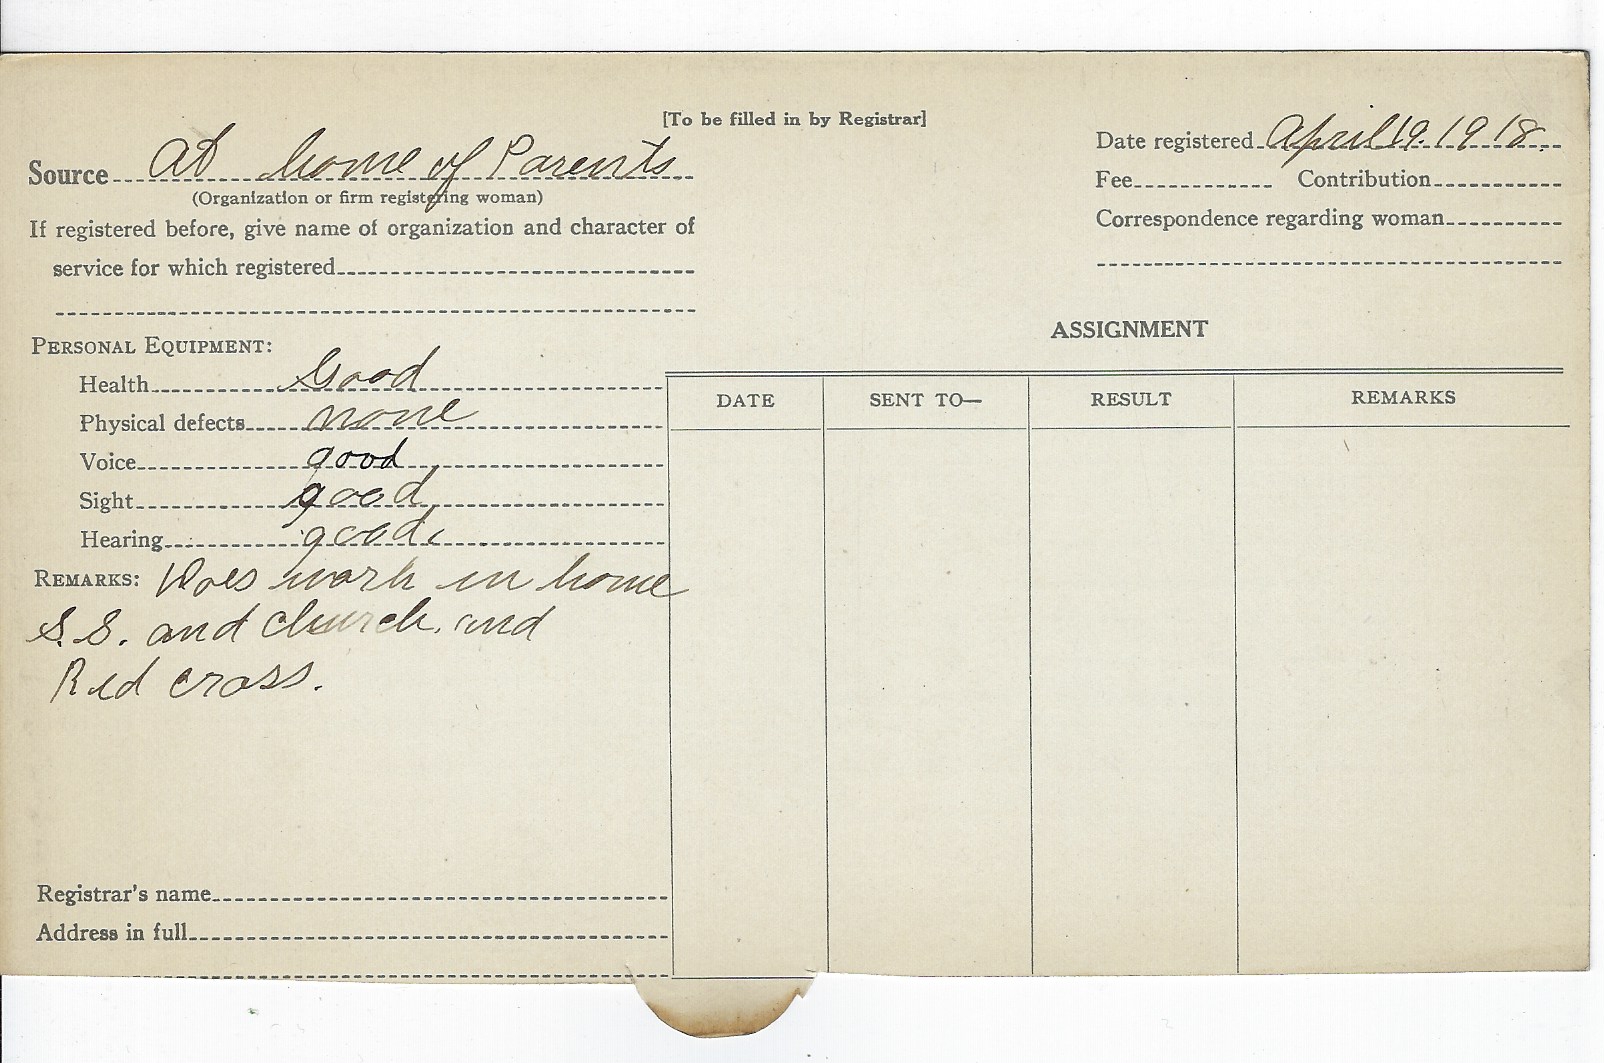 [To be filled in by Registrar]
Source At home of Parents
(Organization or firm registering woman)
If registered before, give name of organization and character of
service for which registered
Date registered April 19. 1918.
Fee Contribution
Correspondence regarding woman
PERSONAL EQUIPMENT:
Health Good
Physical defects none
Voice good
Sight good
Hearing good
REMARKS: Does work in home
S.S. and church and
Red cross.
Registrar's name
Address in full
ASSIGNMENT
DATE SENT TO— RESULT REMARKS